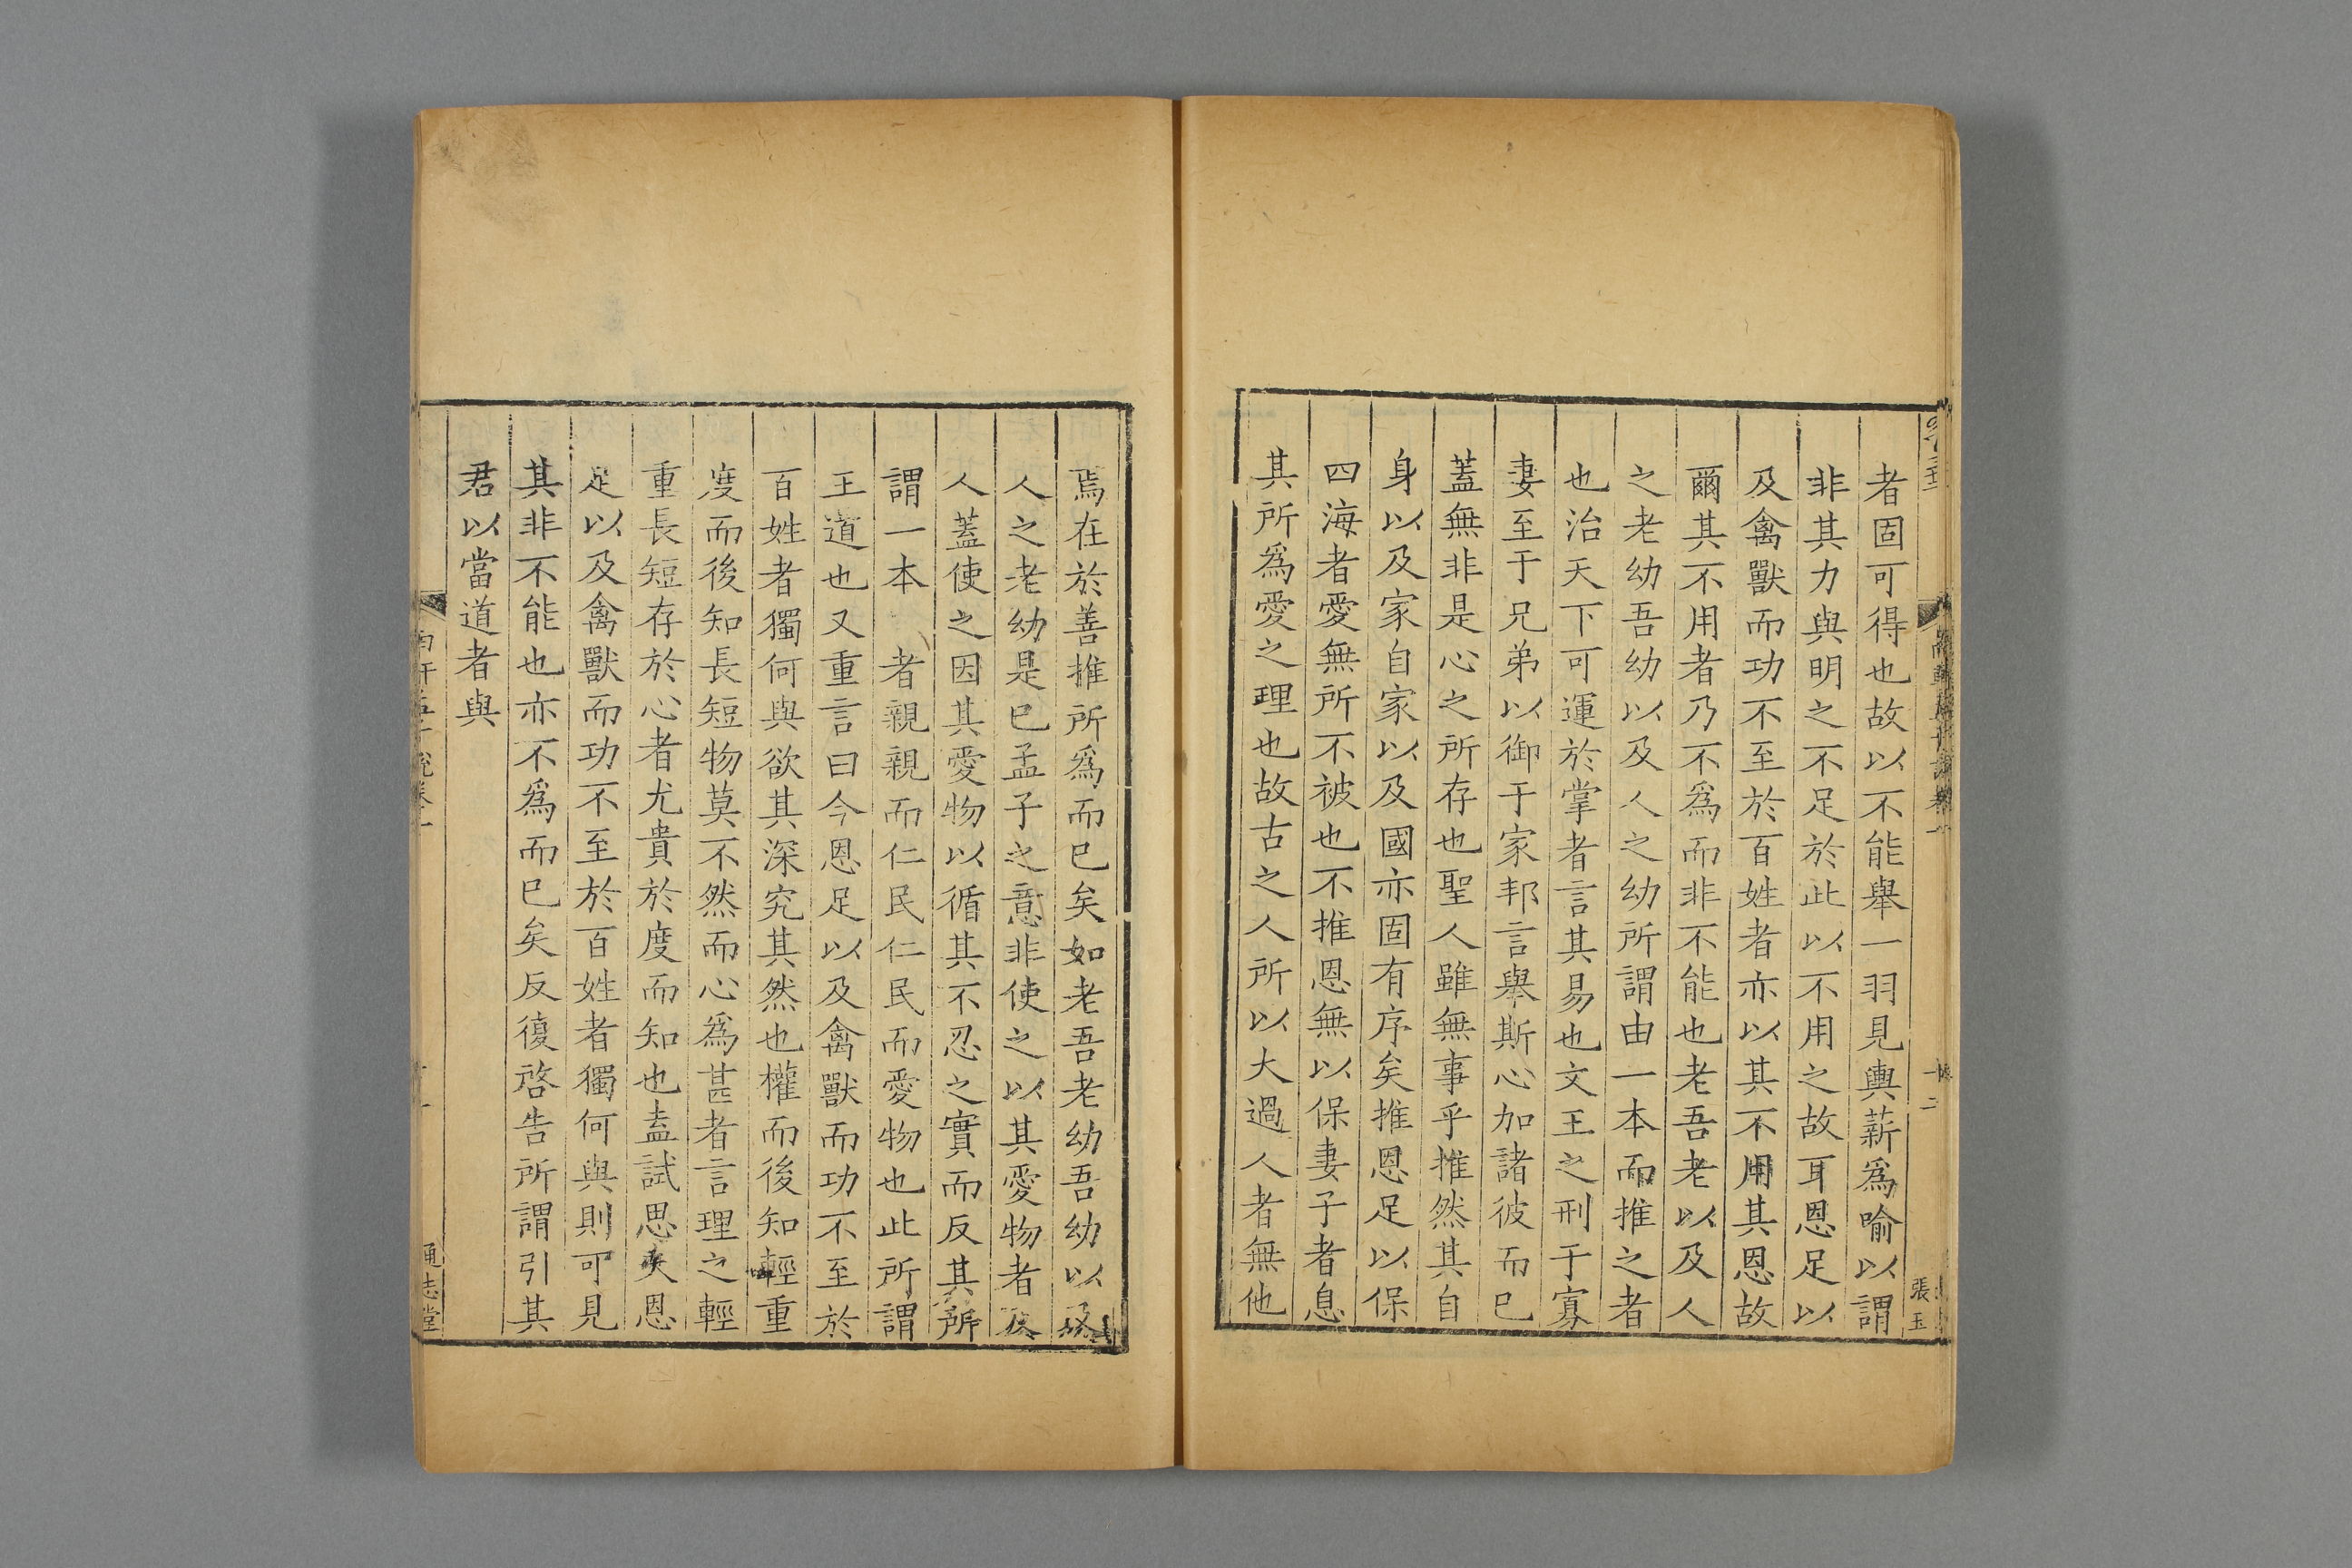 者固可得也故以不能舉一羽見輿薪爲喻以謂
非其力與明之不足於此以不用之故耳恩足以
及禽獸而功不至於百姓者亦以其不用其恩故
爾其不用者乃不爲而非不能也老吾老以及人
之老幼吾幼以及人之幼所謂由一本而推之者
也治天下可運於掌者言其易也文王之刑于寡
妻至于兄弟以御于家邦言舉斯心加諸彼而已
蓋無非是心之所存也聖人雖無事乎推然其自
身以及家自家以及國亦固有序矣推恩足以保
四海者愛無所不被也不推恩無以保妻子者息
其所爲愛之理也故古之人所以大過人者無他
張玉
焉在於善推所爲而已矣如老吾老幼吾幼以及
人之老幼是已孟子之意非使之以其愛物者及
人蓋使之因其愛物以循其不忍之實而反其所
謂一本者親親而仁民仁民而愛物也此所謂
王道也又重言曰今恩足以及禽獸而功不至於
百姓者獨何與欲其深究其然也權而後知輕重
度而後知長短物莫不然而心爲甚者言理之輕
重長短存於心者尤貴於度而知也盍試思夫恩
足以及禽獸而功不至於百姓者獨何與則可見
其非不能也亦不爲而已矣反復啓告所謂引其
君以當道者與
通志堂